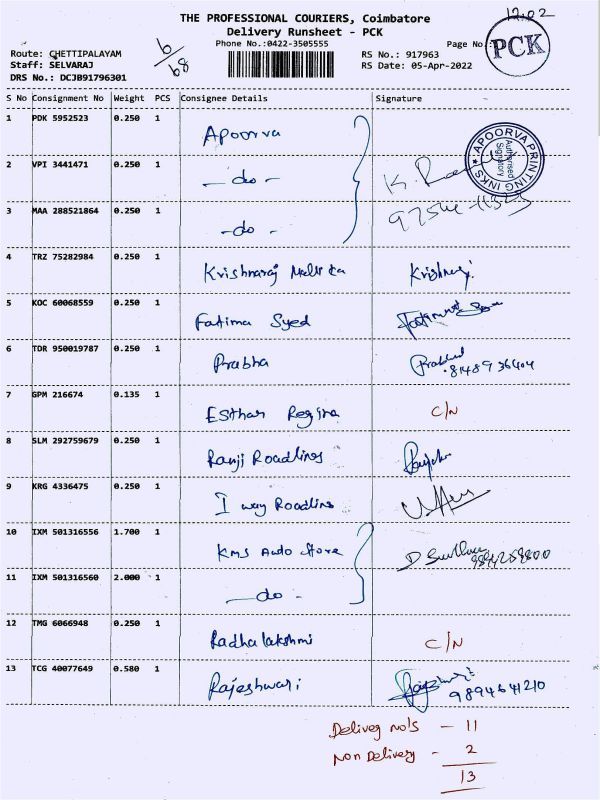 17.02
THE PROFESSIONAL COURIERS, Coimbatore
Delivery Runsheet - PCK
Phone No.:0422-3505555 Page No.:
PCK
Route: CHETTIPALAYAM RS No.: 917963
Staff: SELVARAJ RS Date: 05-Apr-2022
DRS No.: DCJB91796301
6/68
S No Consignment No Weight PCS Consignee Details Signature
1 PDK 5952523 0.250 1 Apoorva
APOORVA PRINTING INKS
Authorised Signatory
2 VPI 3441471 0.250 1 -do-
3 MAA 288521864 0.250 1 -do-
4 TRZ 75282984 0.250 1 Krishnaraj Krishnaraj
5 KOC 60068559 0.250 1 Fatima Syed
6 TDR 950019787 0.250 1 Prabha
8148936404
7 GPM 216674 0.135 1 Esthar Regina C/N
8 SLM 292759679 0.250 1 Ranji Roadlines
9 KRG 4336475 0.250 1 I way Roadlins
10 IXM 501316556 1.700 1 KMS Auto Store
11 IXM 501316560 2.000 1 -do-
12 TMG 6066948 0.250 1 Radhalakshmi C/N
13 TCG 40077649 0.580 1 Rajeshwari
9894641210
Delivey no's - 11
Non Delivery - 2
13